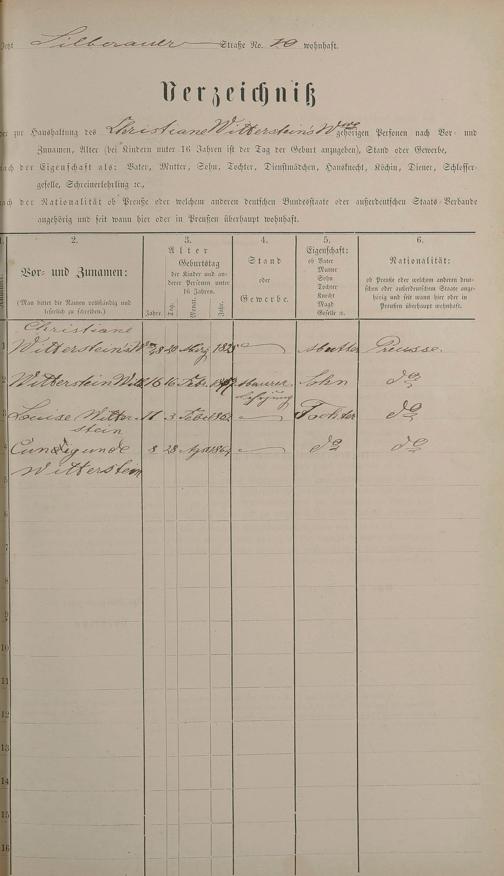 Jetzt Silberauer Straße No. 10 wohnhaft.
Verzeichniß
der zur Haushaltung des Christiane Wittersteins Wwe gehörigen Personen nach Vor- und
Zunamen, Alter (bei Kindern unter 16 Jahren ist der Tag der Geburt anzugeben), Stand oder Gewerbe,
nach der Eigenschaft als: Vater, Mutter, Sohn, Tochter, Dienstmädchen, Hausknecht, Köchin, Diener, Schlosser-
geselle, Schreinerlehrling ꝛc.,
nach der Nationalität ob Preuße oder welchem anderen deutschen Bundesstaate oder außerdeutschen Staats-Verbande
angehörig und seit wann hier oder in Preußen überhaupt wohnhaft.
1. 2. 3. 4. 5. 6.
Vor- und Zunamen:
(Man bittet die Namen vollständig und
leserlich zu schreiben.)
Alter
Geburtstag
der Kinder und an-
derer Personen unter
16 Jahren.
Jahre. Tag. Monat. Jahr.
Stand
oder
Gewerbe.
Eigenschaft:
ob Vater
Mutter
Sohn
Tochter
Knecht
Magd
Geselle ꝛc.
Nationalität:
ob Preuße oder welchem anderen deut-
schen oder außerdeutschen Staate ange-
hörig und seit wann hier oder in
Preußen überhaupt wohnhaft.
Christiane
1 Wittersteins Wwe 48 20 März 1825 Mutter Preusse.
2 Witterstein 16 16 Febr. Maurer Sohn do
Lehrjung
3 Louise Witter 11 3 Febr 1862 Tochter do
stein
4 Cunigunde 8 28 Apr 1864 do do
Witterstein
5
6
7
8
9
10
11
12
13
14
15
16